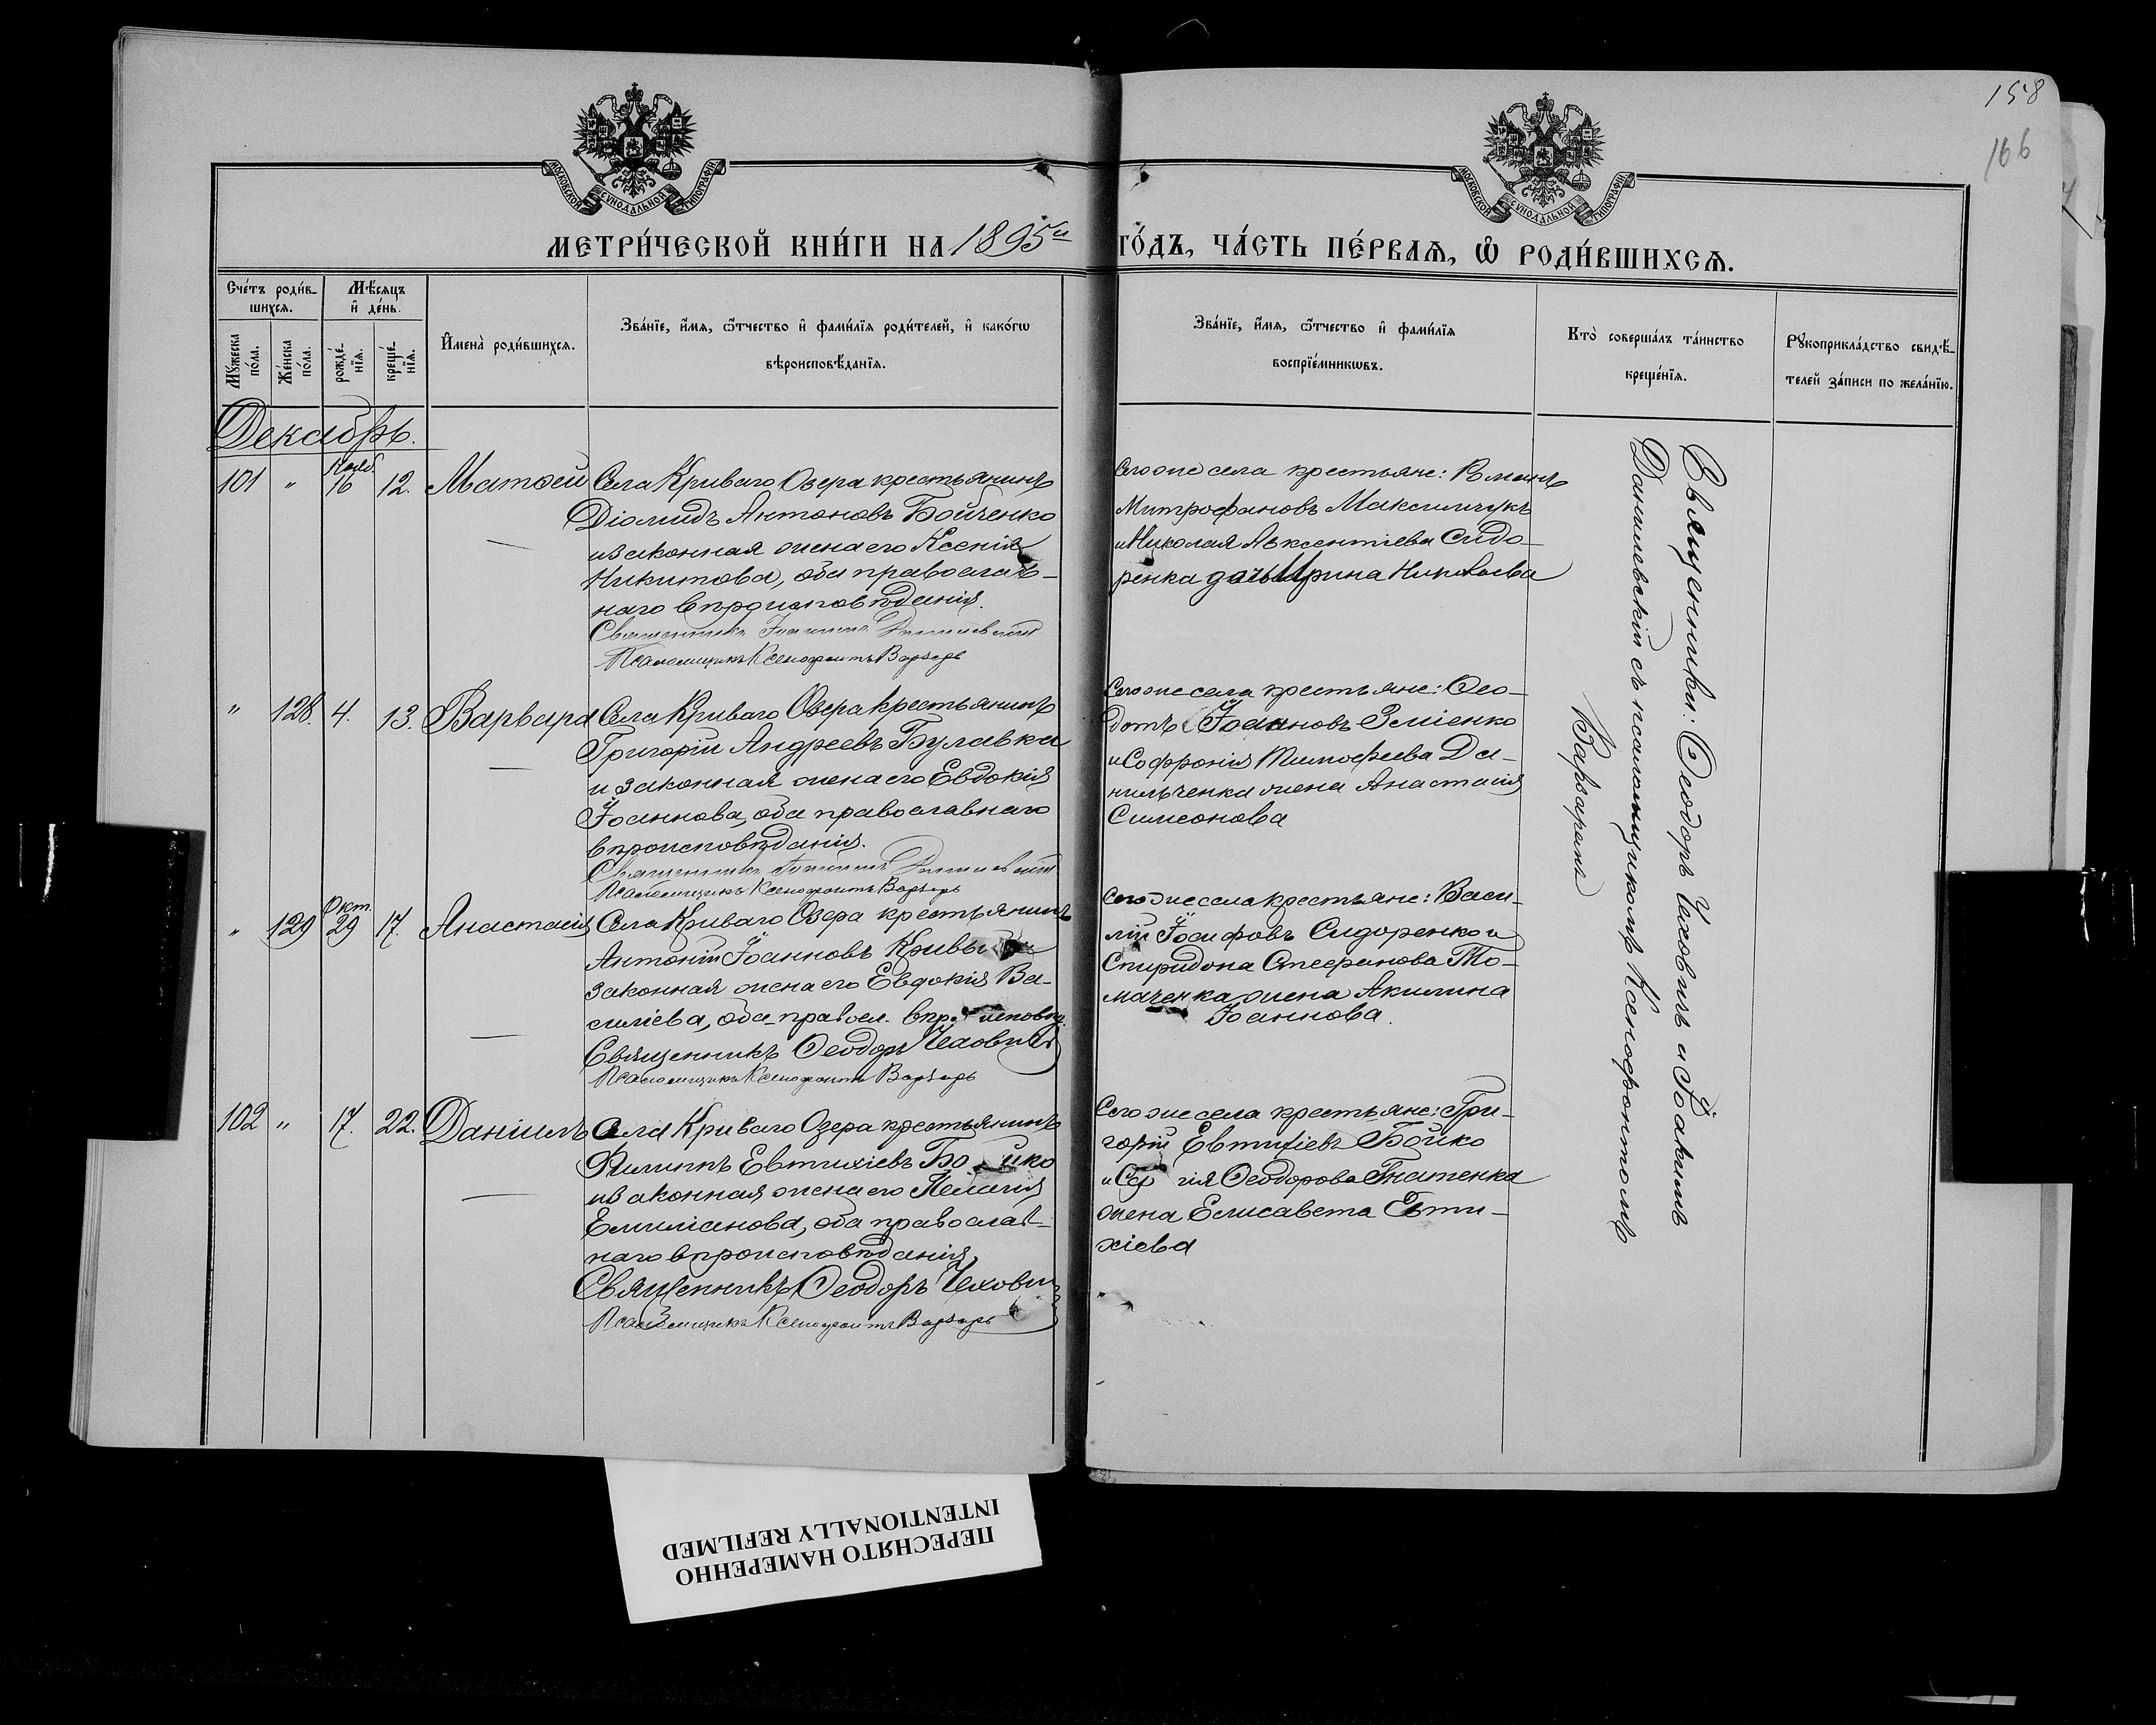 158
166
МОСКОВСКОЙ СѴНОДАЛЬНОЙ ТИПОГРАФІИ
МОСКОВСКОЙ СѴНОДАЛЬНОЙ ТИПОГРАФІИ
МЕТРИ́ЧЕСКОЙ КНИ́ГИ НА 1895й ГО́ДЪ, ЧА́СТЬ ПЕ́РВАѦ, Ѽ РОДИ́ВШИХСѦ.
Сче́тъ роди́в-
шихсѧ.
Мѣ́сѧцъ
и҆ де́нь.
Мꙋ́жеска
по́ла.
Же́нска
по́ла.
рожде́-
нїѧ.
креще́-
нїѧ.
И҆мена̀ роди́вшихсѧ.
Зва́нїе, и҆́мѧ, ѻ҆́тчество и҆ фами́лїѧ роди́телей, и҆ како́гѡ
вѣроисповѣ́данїѧ.
Зва́нїе, и҆́мѧ, ѻ҆́тчество и҆ фами́лїѧ
воспрїе́мникѡвъ.
Кто̀ соверша́лъ та́инство
креще́нїѧ.
Рꙋкоприкла́дство свидѣ́-
телей за́писи по жела́нїю.
Декабрь.
101 " Нояб. 16 12. Матѳей
Села Криваго Озера крестьянинъ
Діомидъ Антоновъ Бойченко
и законная жена его Ксенія
Никитова, оба православ-
наго вѣроисповѣданія.
Священникъ Іоакимъ Данилевскій
Псаломщикъ Ксенофонтъ Варварь
Сего же села крестьяне: Романъ
Митрофановъ Максимчукъ
и Николая Авксентіева Сидо-
ренка дочь Ирина Николаева
" 128. 4. 13. Варвара
Села Криваго Озера крестьянинъ
Григорій Андреевъ Булавка
и законная жена его Евдокія
Іоаннова, оба православнаго
вѣроисповѣданія.
Священникъ Іоакимъ Данилевскій
Псаломщикъ Ксенофонтъ Варварь
Сего же села крестьяне: Ѳео-
дотъ Іоанновъ Зміенко
и Софронія Тимофеева Да-
нильченка жена Анастасія
Симеонова
" 129 Окт. 29 17. Анастасія
Села Криваго Озера крестьянинъ
Антоній Іоанновъ Кривы
законная жена его Евдокія Ва-
силіева, оба правосл. вѣроисповѣд.
Священникъ Ѳеодоръ Чеховичъ
Псаломщикъ Ксенофонтъ Варварь
Сего же села крестьяне: Васи-
лій Іосифовъ Сидоренко и
Спиридона Стефанова То-
маченка жена Акилина
Іоаннова.
102 " 17. 22. Даніилъ
Села Криваго Озера крестьянинъ
Филиппъ Евтихіевъ Бойко
и законная жена его Пелагія
Емиліанова, оба православ-
наго вѣроисповѣданія
Священникъ Ѳеодоръ Чехович
Псаломщикъ Ксенофонтъ Варварь
Сего же села крестьяне: Гри-
горій Евтихіевъ Бойко
и Сергія Ѳеодорова Гнатенка
жена Елисавета Евти-
хіева
Священники: Ѳеодоръ Чеховичъ и Іоакимъ
Данилевскій съ псаломщикомъ Ксенофонтомъ
Варваремъ
ПЕРЕСНЯТО НАМЕРЕННО
INTENTIONALLY REFILMED